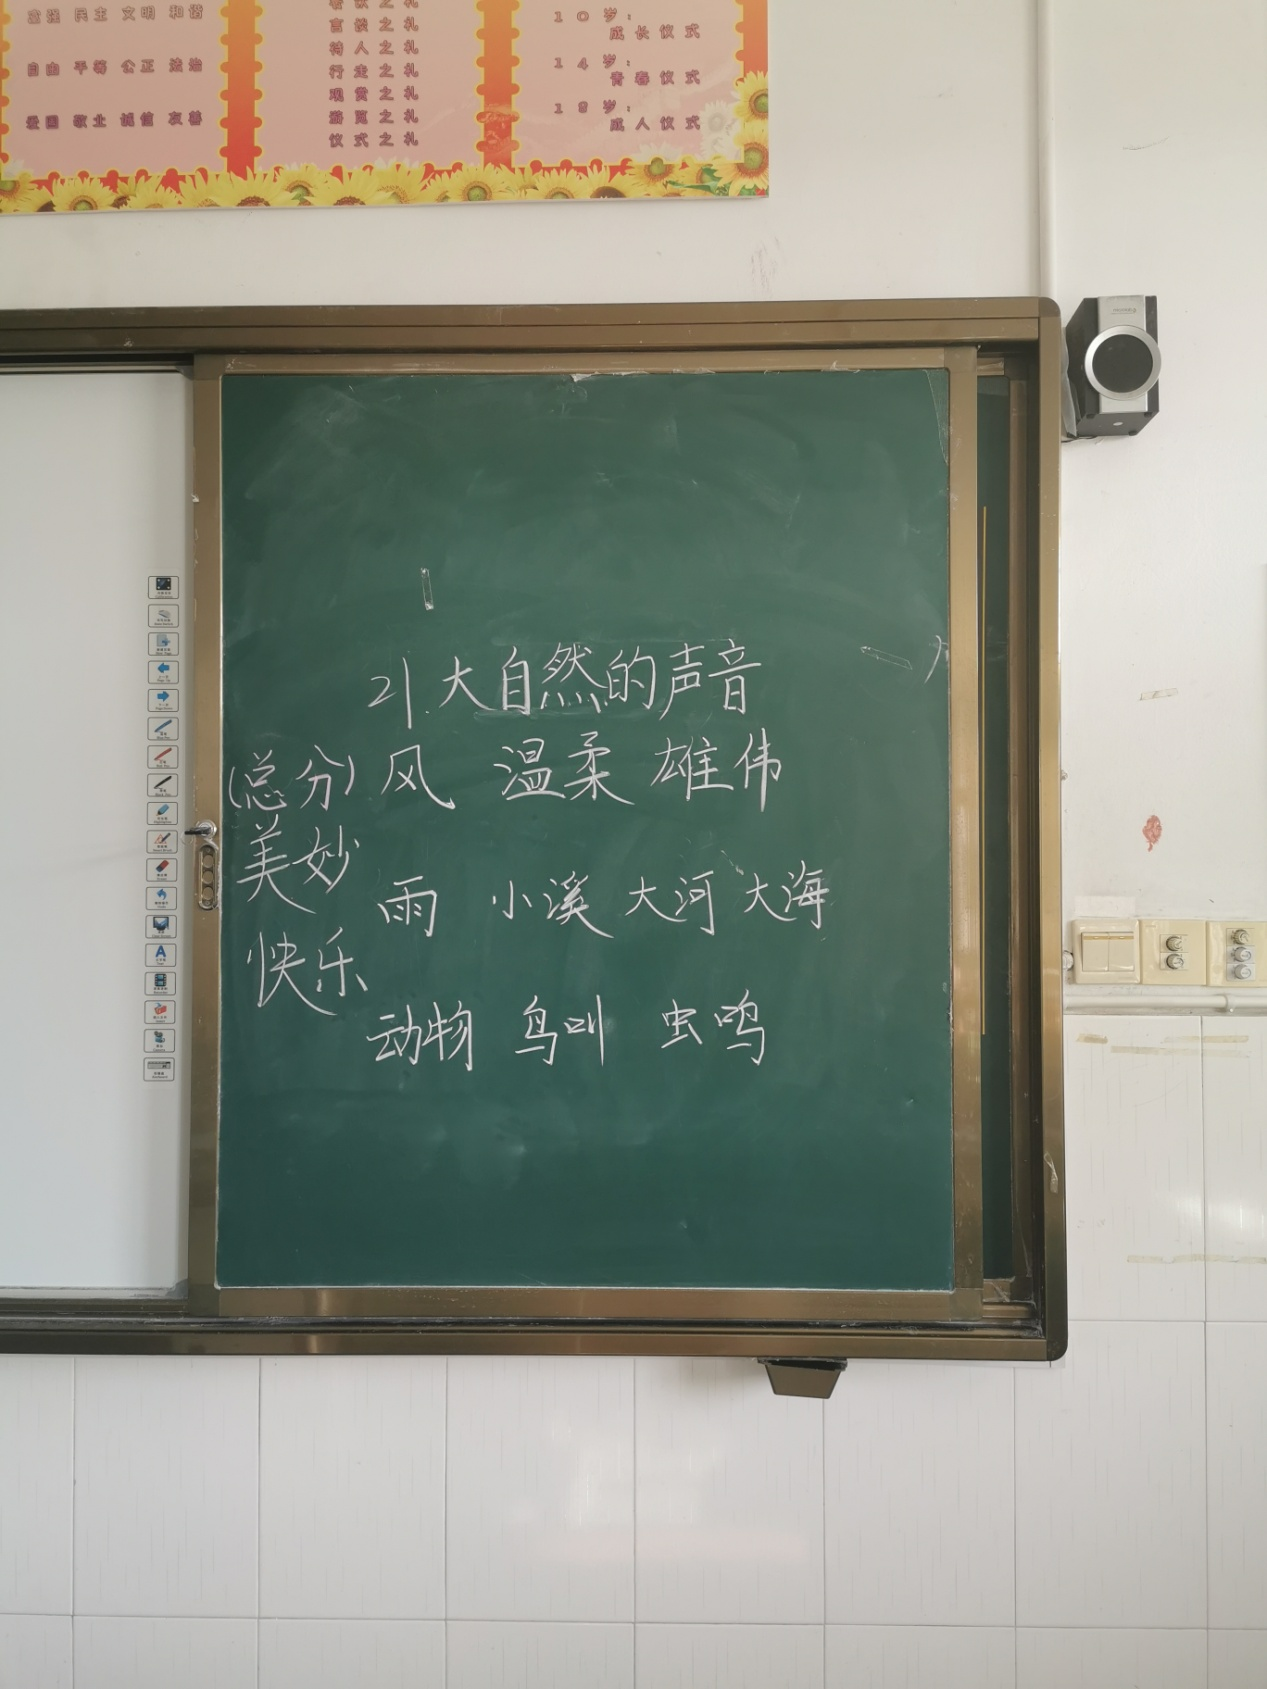 富强 民主 文明 和谐
自由 平等 公正 法治
爱国 敬业 诚信 友善
言谈之礼
待人之礼
行走之礼
观赏之礼
游览之礼
仪式之礼
10岁:
成长仪式
14岁:
青春仪式
18岁:
成人仪式
21.大自然的声音
(总分) 风 温柔 雄伟
美妙
雨 小溪 大河 大海
快乐
动物 鸟叫 虫鸣